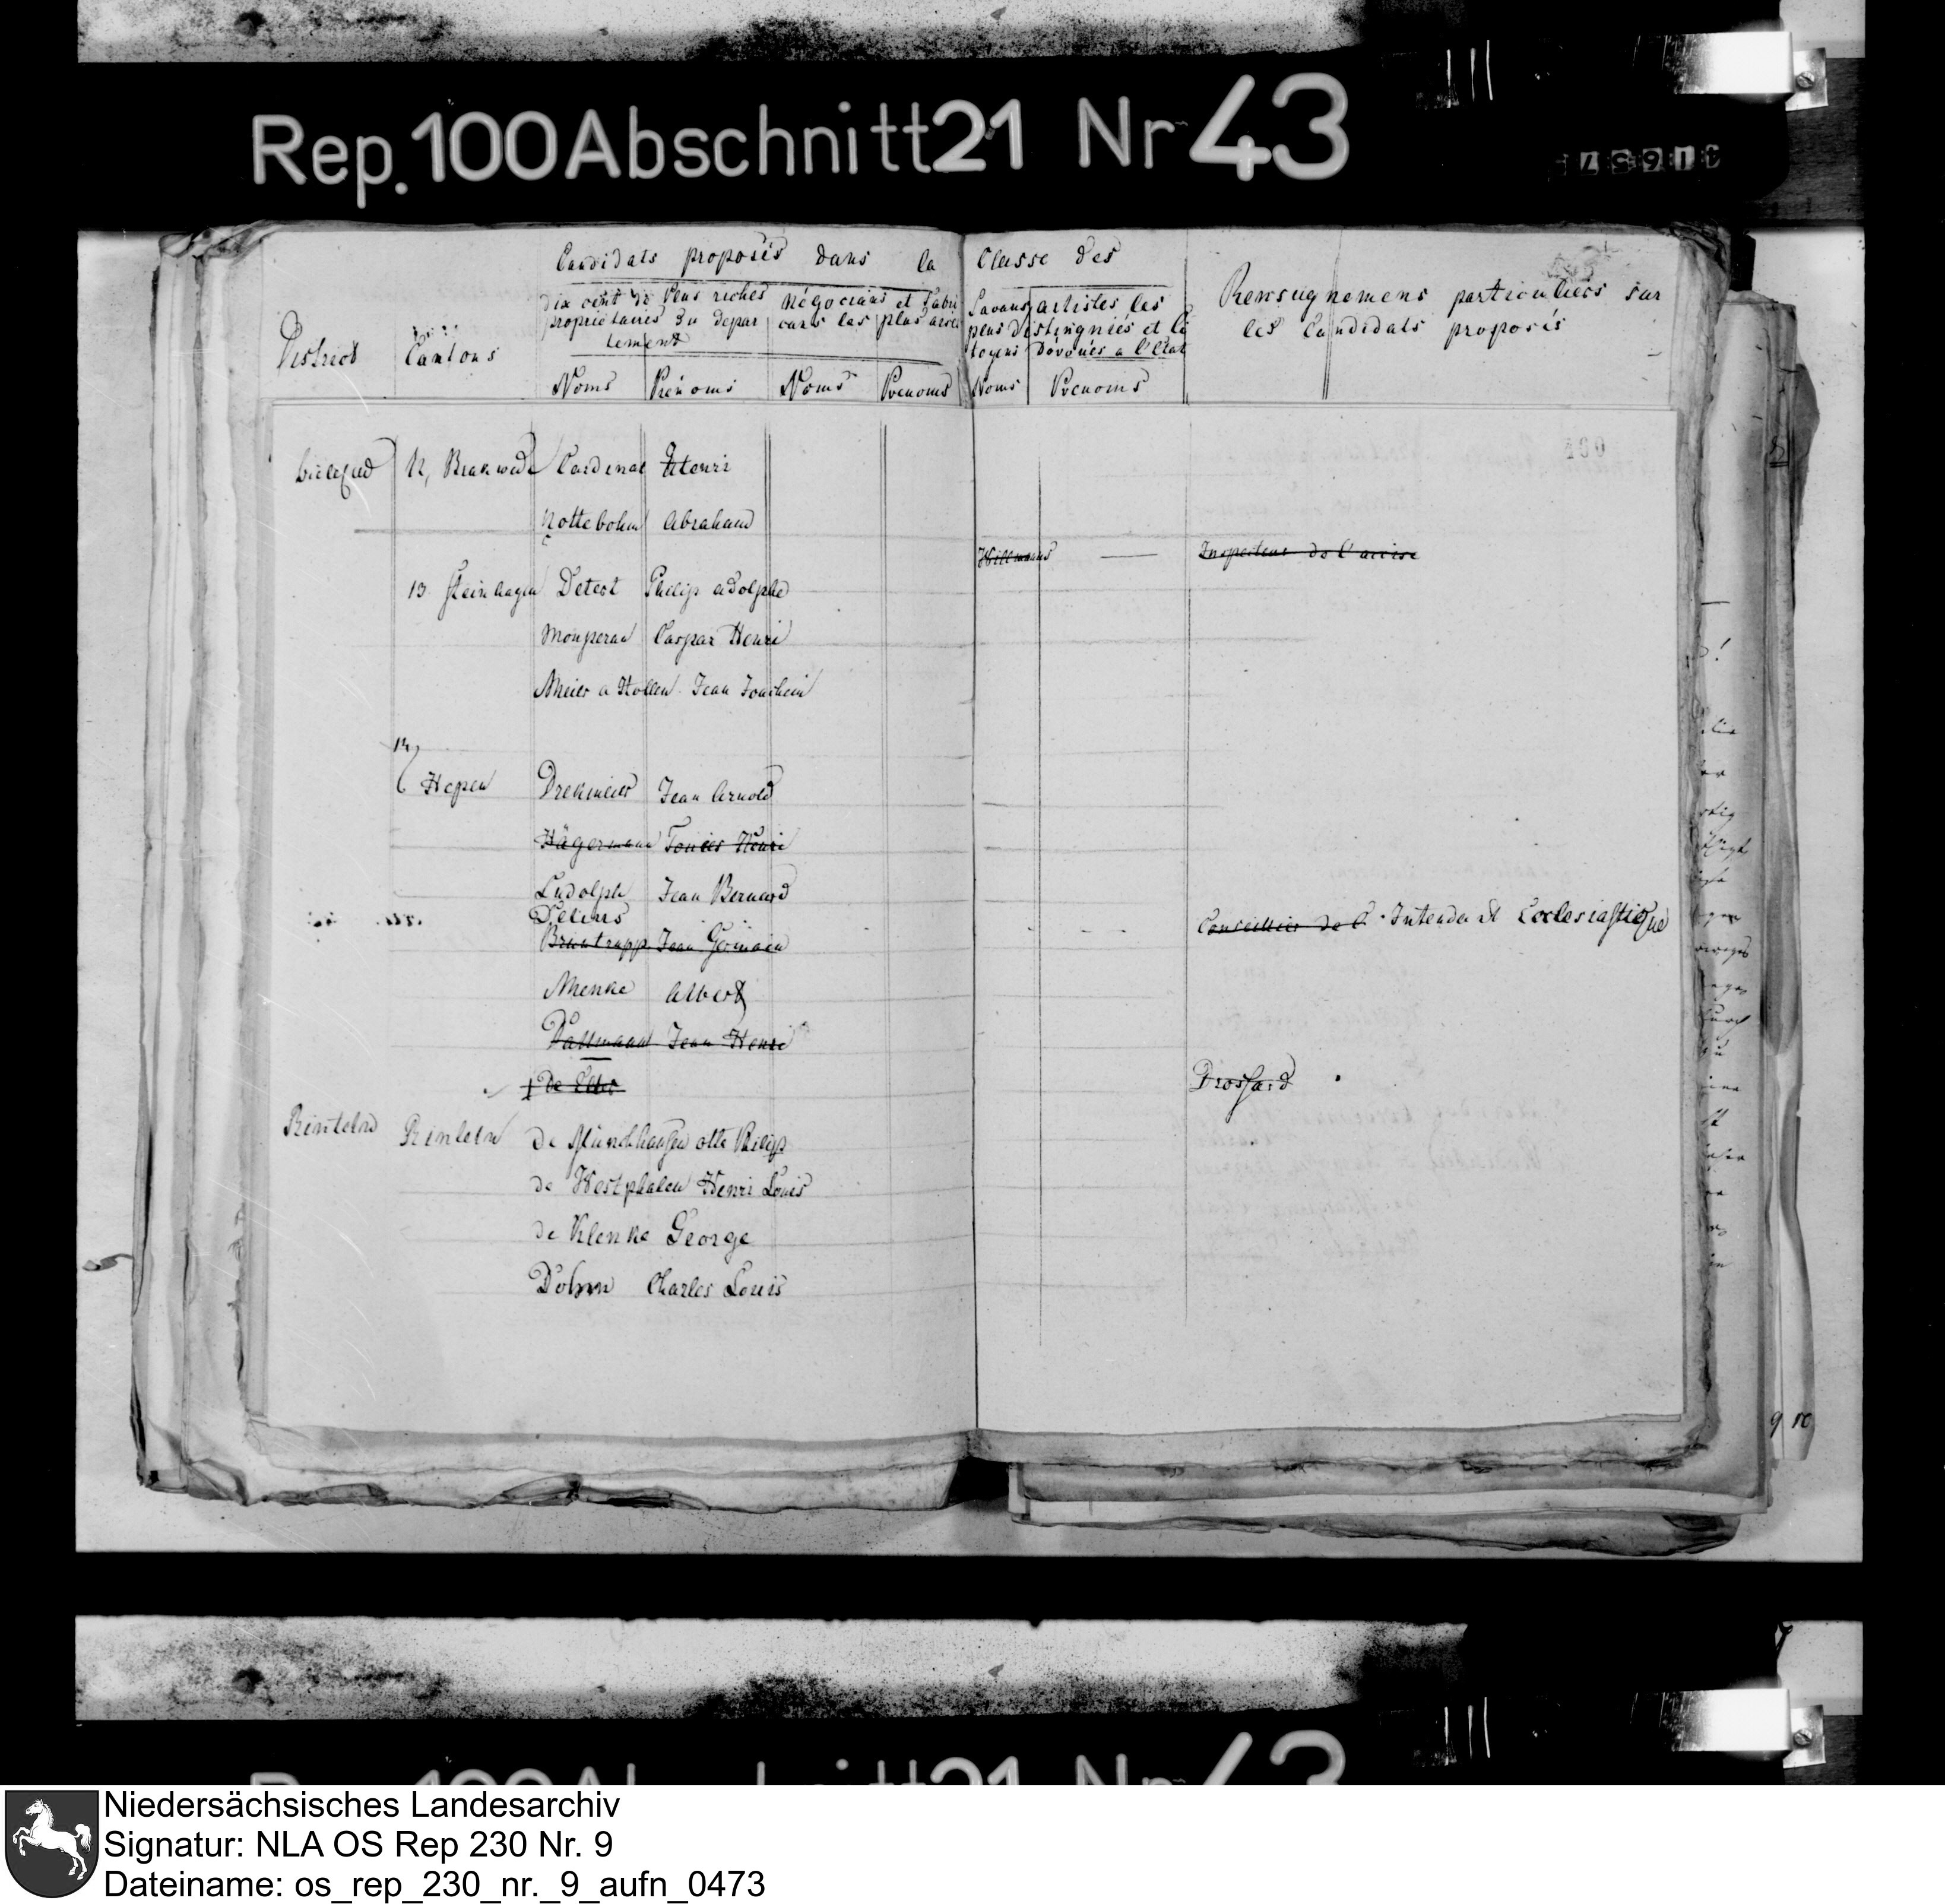 Rep. 100 Abschnitt 21 Nr 43
Candidats proposés dans la Classe des
dix cent de Plus riches propriétaires du depar
tement
Négocians et fabri
cans les plus
Savans artistes, les
plus distingués et Ci
toyens dévoués a l'Etat
Renseignemens particuliers sur
les Candidats proposés
District Cantons Noms Prénoms Noms Prenoms Noms Prenoms
Bielefeld 12, Brakwede Cardinal Henri
Nottebohm Abraham
Inspecteur de l'accise
13 Steinhagen Detert Philip adolphe
Caspar Henri
Meier a Hollen Jean Joachim
14
Hepen Drekmeier Jean Arnold
Hägermann Henri
Ludolph Jean Bernard
Delius Conseillier de l' Intendent Ecclesiastique
Brantrupp Jean
Menke Albert
Jean Henri
Drossard
Rinteln Rinteln de Münchhausen otto Philipp
de Westphalen Henri Louis
de Klenke George
Dohm Charles Louis
Niedersächsisches Landesarchiv
Signatur: NLA OS Rep 230 Nr. 9
Dateiname: os_rep_230_nr._9_aufn_0473